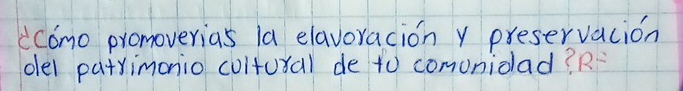 ¿cómo promoverias la elavoración y preservación
del patrimonio cultural de tu comunidad?R=